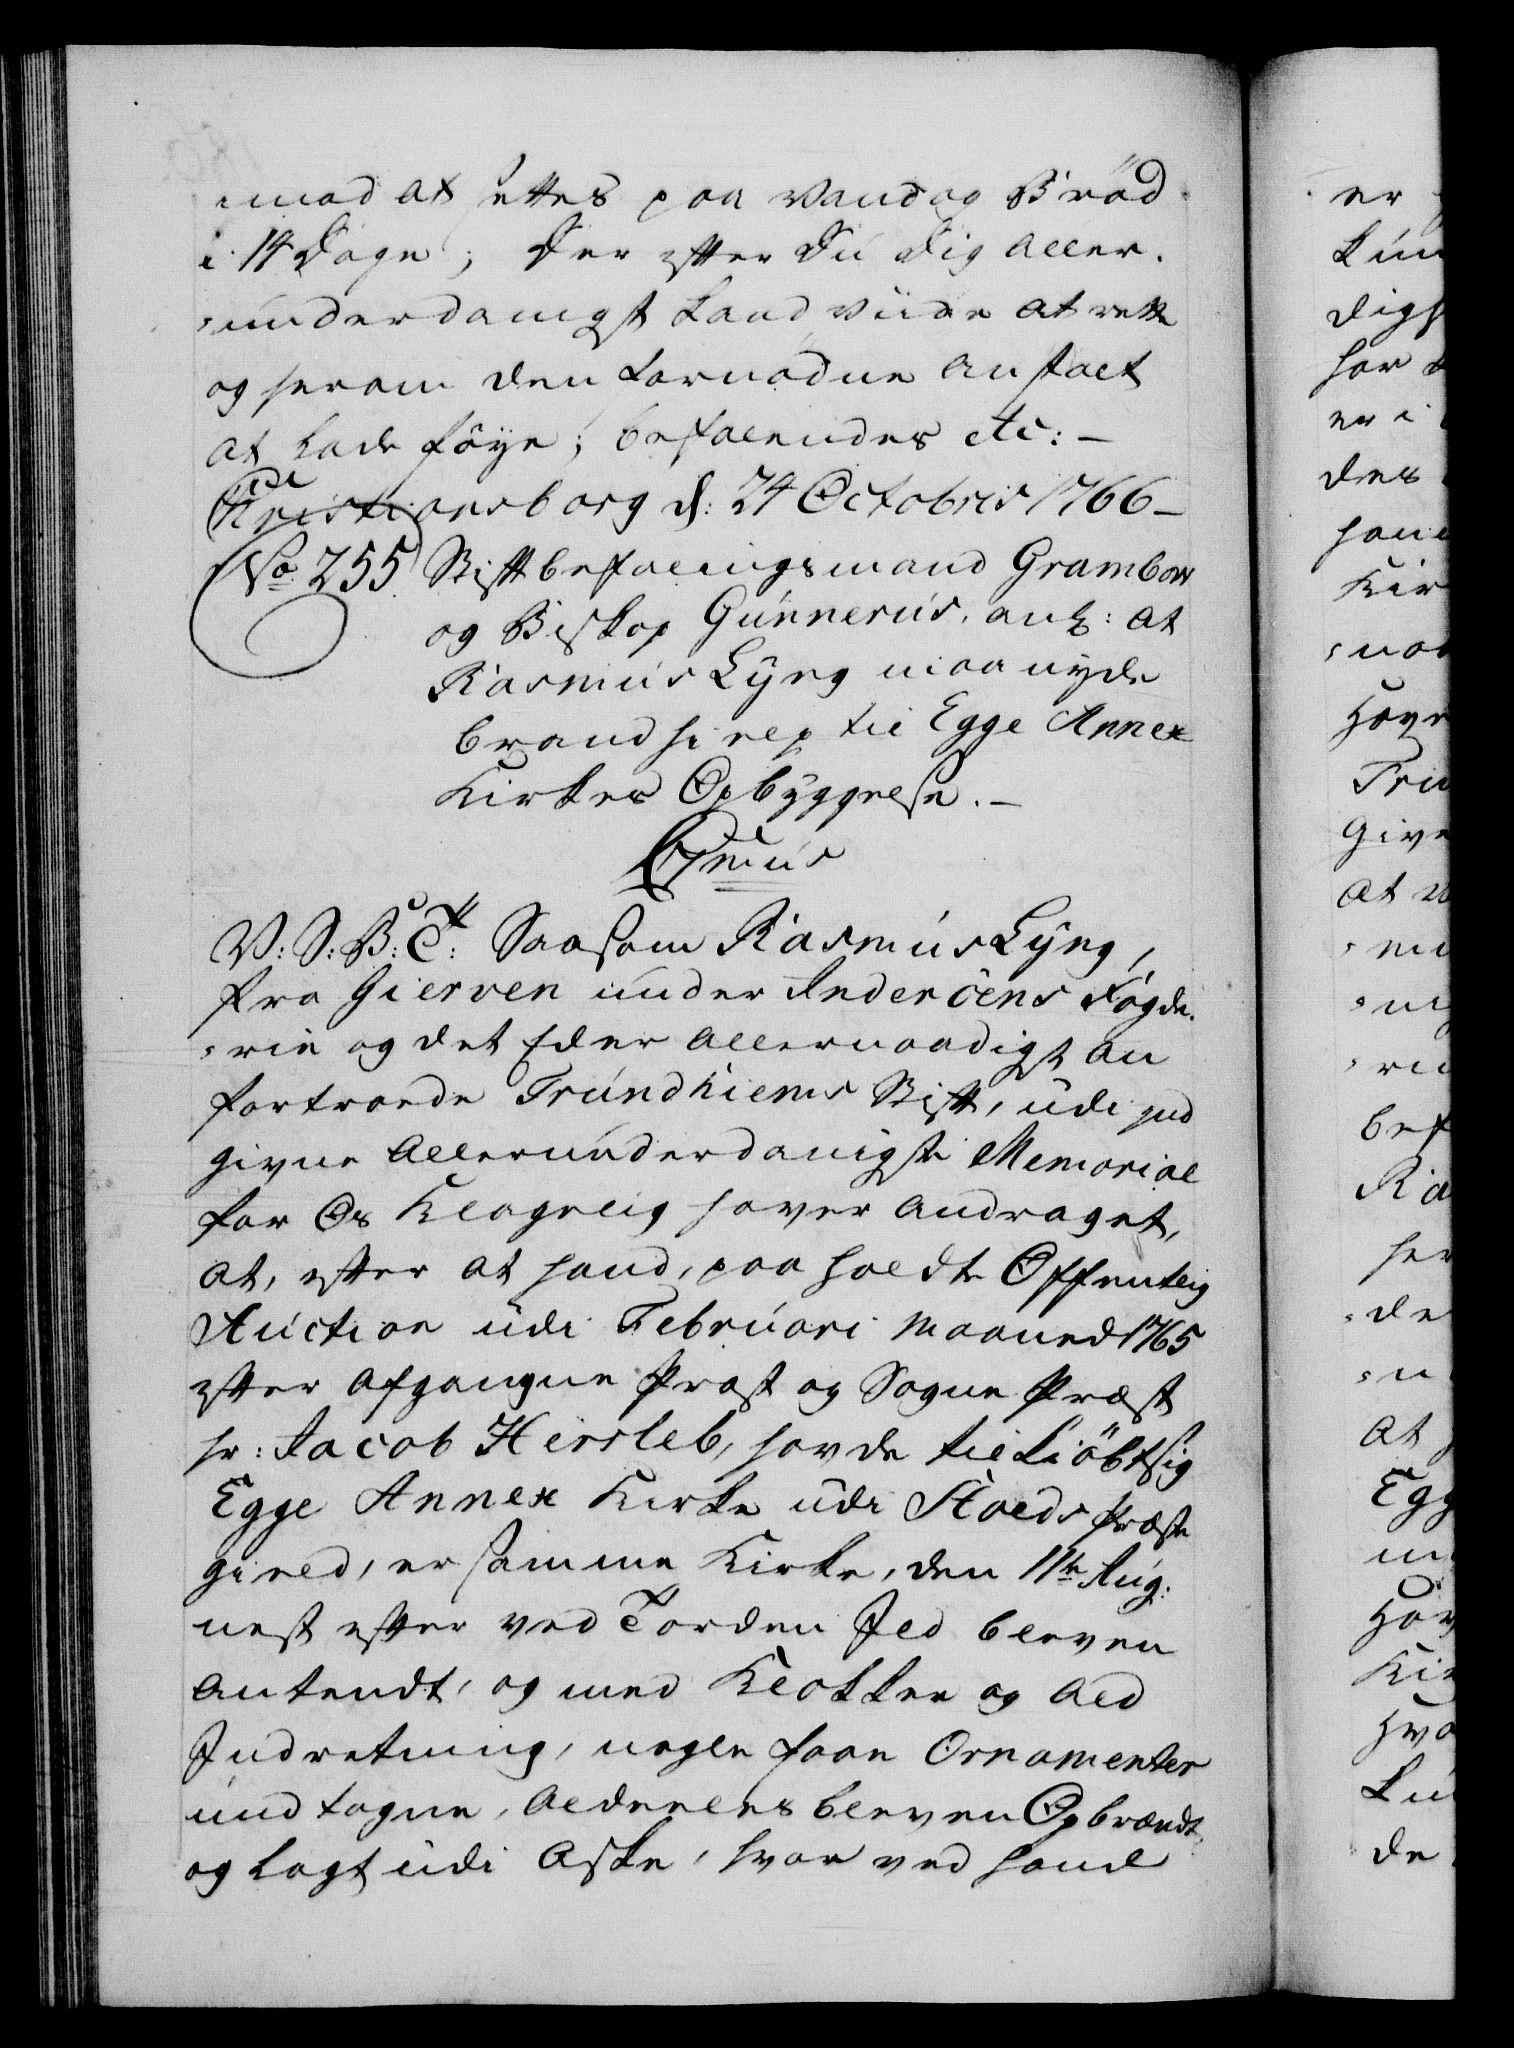 imod at settes paa Vand og Brød
i 14 Dage; Der efter Du Dig aller-
underdanigst kand viide at rette
og herom den fornødne Anstalt
at lade føye; befalendes etc: –
Christiansborg d: 24 Octobris 1766 –
No 255 Stiftbefalingsmand Grambow
og Biskop Gunnerus, ang: at
Rasmus Lÿng maa nyde
brandhielp til Egge Annex
Kirkes Opbÿggelse. –
V: S: B: T: Saasom Rasmus Lÿng,
fra Gierven under Inderöens Fogde-
rie og det Eder allernaadigst an
fortroede Trundhiems Stift, udi ind
givne allerunderdanigste Memorial
for Os klagelig haver andraget,
at, efter at hand, paa holdte Offentlig
Auction udi Februari Maaned 1765
efter afgangne Prost og Sogne Præst
hr: Jacob Hersleb, havde tilkiöbt sig
Egge Annex Kirke udi Stods Præste
gield, er samme Kirke, den 11te Aug:
nest efter ved Torden Ild bleven
antendt, og med Klokker og ald
Indretning, nogle faae Ornamenter
undtagne, aldeeles bleven Opbrændt,
og lagt udi Aske, hvor ved hand
er
kun
digh
har
er i
des
hand
Kir
Give
at
bef
Ra
her
de
at
Egg
Kir
de